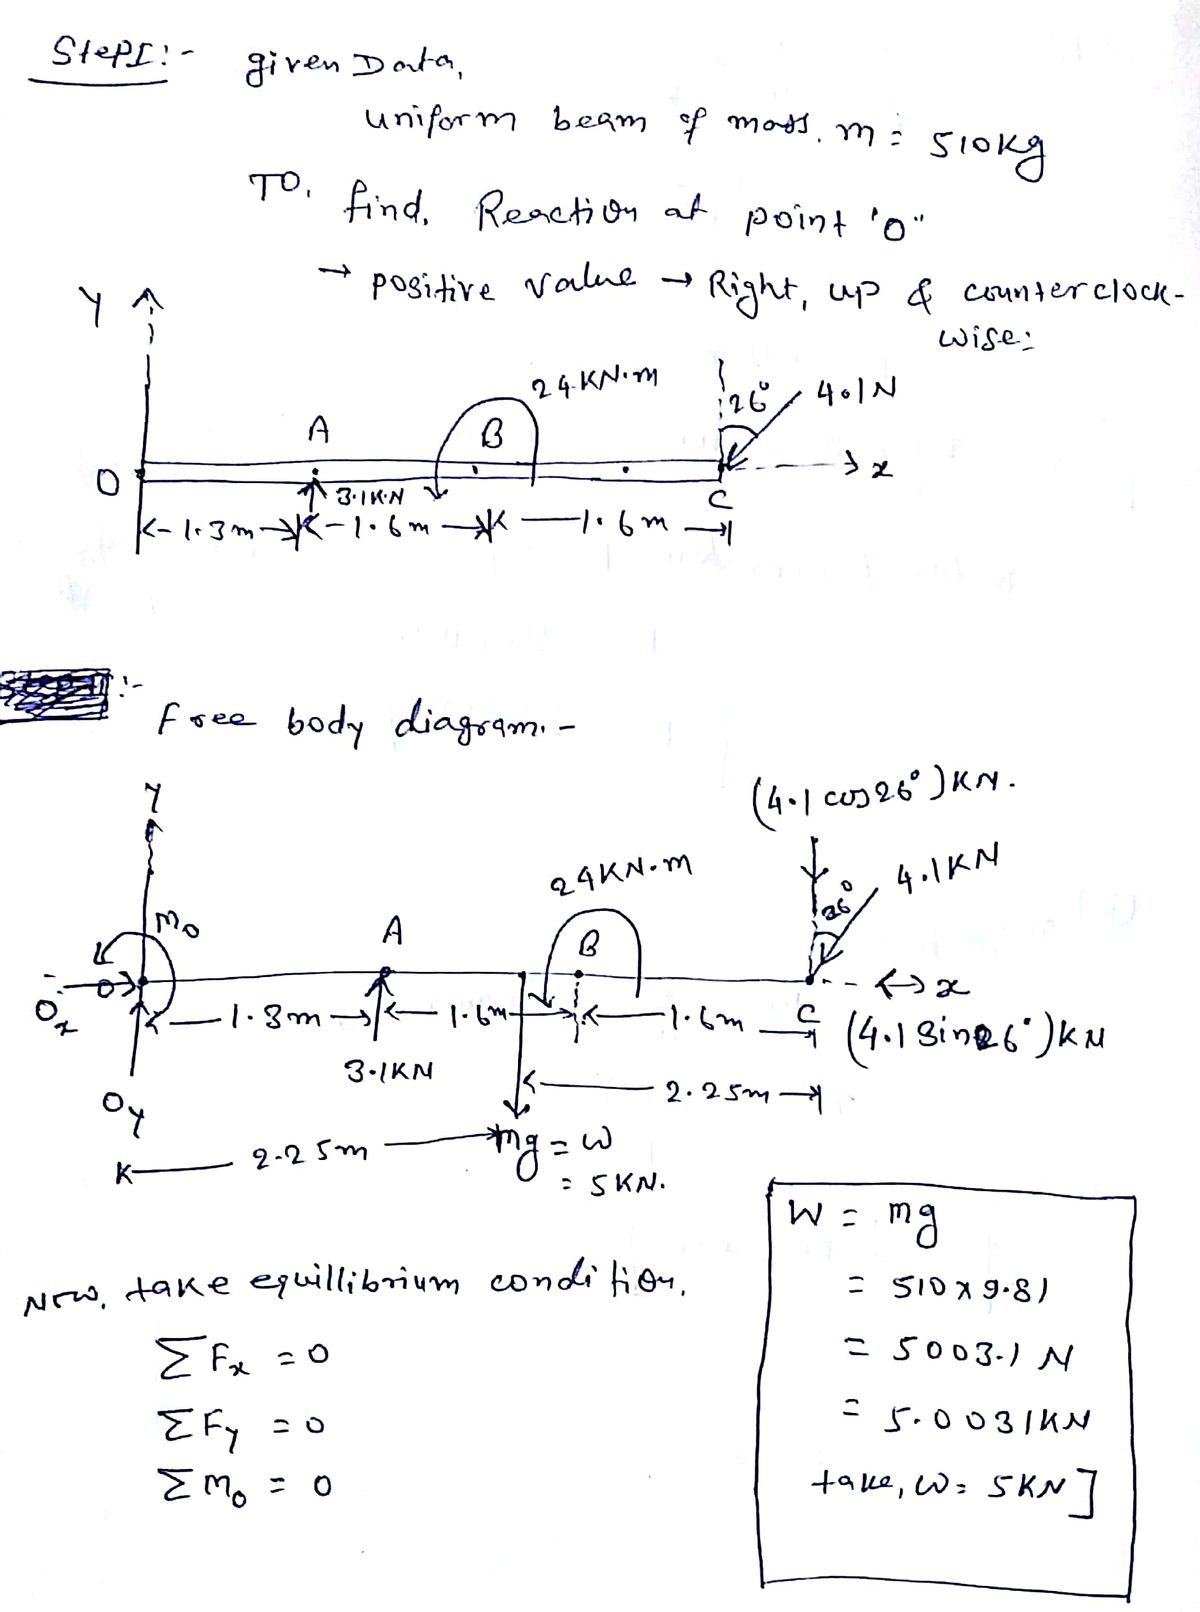 StepI:-
given Data,
uniform beam of mass. m = 510kg
TO, find, Reaction at point 'O"
→ positive value → Right, up & counterclock-
wise:
Y
24 KN·m
26° 4.1N
A
B
O
x
3.1KN
C
1.3m 1.6m 1.6m
:-
Free body diagram.-
(4.1 cos26°)KN.
Y
24KN.m
4.1KN
26°
Mo
A
B
O
Ox
x
1.3m 1.6m 1.6m C
(4.1 Sin26°)KN
3.1KN
2.25m
Oy
2.25m
mg = W
= 5KN.
W = mg
= 510 x 9.81
= 5003.1 N
= 5.0031KN
take, W = 5KN]
Now, take equillibrium condition,
ΣFx = 0
ΣFy = 0
ΣMo = 0